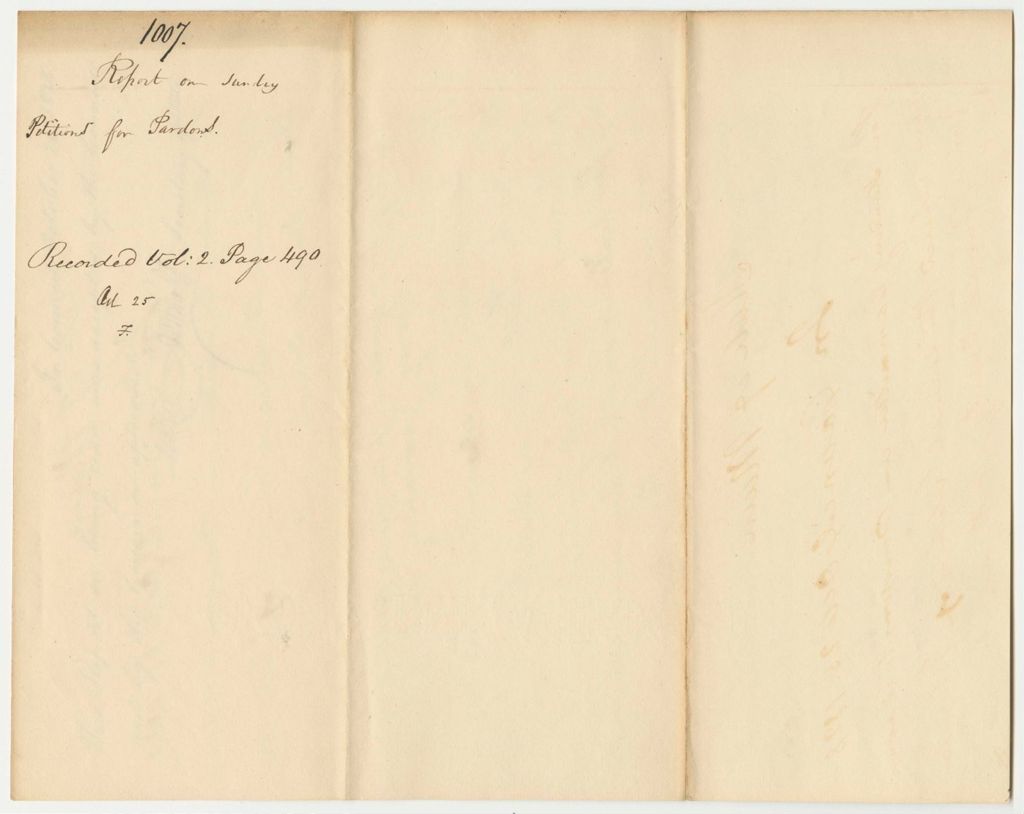 1007.
Report on Sundry
Petitions for Pardons.
Recorded Vol: 2. Page 490
Oct 25
F.